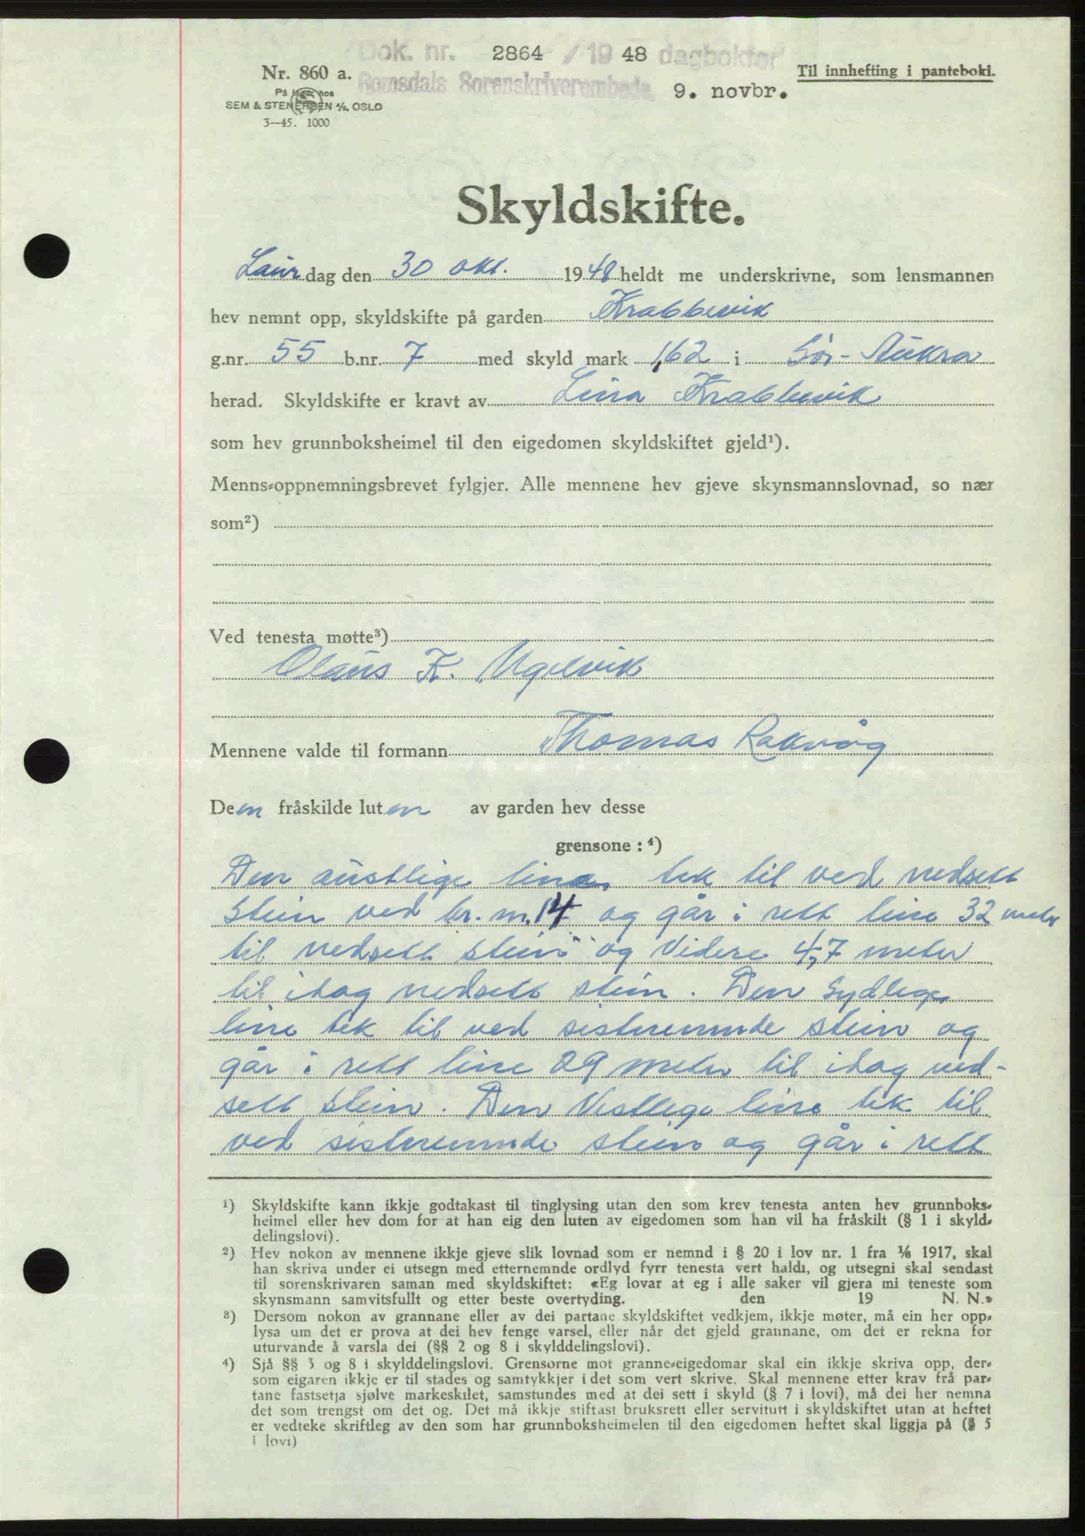 Dok. nr. 2864 /19 48 dagbokført
Romsdals Sorenskriverembede. 9. novbr.
Til innhefting i panteboki.
Nr. 860 a.
På lager hos
SEM & STENERSEN A/S, OSLO
3—45. 1000
Skyldskifte.
Laurdag den 30 okt. 1948 heldt me underskrivne, som lensmannen
hev nemnt opp, skyldskifte på garden Krabbevik
g.nr. 55 b.nr. 7 med skyld mark 1,62 i Sør-Aukra
herad. Skyldskifte er kravt av Lina Krabbevik
som hev grunnboksheimel til den eigedomen skyldskiftet gjeld¹).
Menns-oppnemningsbrevet fylgjer. Alle mennene hev gjeve skynsmannslovnad, so nær
som²)
Ved tenesta møtte³)
Olaus K. Ugelvik
Mennene valde til formann Thomas Rakvåg
Den fråskilde luten av garden hev desse
grensone: ⁴)
Den austlige line tek til ved nedsett
stein ved br. nr. 14 og går i rett line 32 meter
til nedsett stein og videre 4,7 meter
til idag nedsett stein. Den sydlige
line tek til ved sistnemnde stein og
går i rett line 29 meter til idag ned-
sett stein. Den vestlege line tek til
ved sistnemnde stein og går i rett
¹) Skyldskifte kann ikkje godtakast til tinglysing utan den som krev tenesta anten hev grunnboks-
heimel eller hev dom for at han eig den luten av eigedomen som han vil ha fråskilt (§ 1 i skyld-
delingslovi).
²) Hev nokon av mennene ikkje gjeve slik lovnad som er nemnd i § 20 i lov nr. 1 fra 1/6 1917, skal
han skriva under ei utsegn med etternemnde ordlyd fyrr tenesta vert haldi, og utsegni skal sendast
til sorenskrivaren saman med skyldskiftet: «Eg lovar at eg i alle saker vil gjera mi teneste som
skynsmann samvitsfullt og etter beste overtyding. den 19 N. N.»
³) Dersom nokon av grannane eller av dei partane skyldskiftet vedkjem, ikkje møter, må ein her opp-
lysa um det er prova at dei hev fenge varsel, eller når det gjeld grannane, om det er rekna for
uturvande å varsla dei (§§ 2 og 8 i skylddelingslovi).
⁴) Sjå §§ 3 og 8 i skylddelingslovi. Grensorne mot granne-eigedomar skal ein ikkje skriva opp, der-
som eigaren ikkje er til stades og samtykkjer i det som vert skrive. Skal mennene etter krav frå par-
tane fastsetja sjølve markeskilet, samstundes med at dei sett i skyld (§ 7 i lovi), må dei her nemna
det som trengst om det og. Det må ikkje stiftast bruksrett eller servitutt i skyldskiftet utan at heftet
er vedteke skriftleg av den som har grunnboksheimelen til den eigedomen heftet skal liggja på (§ 5
i lovi)